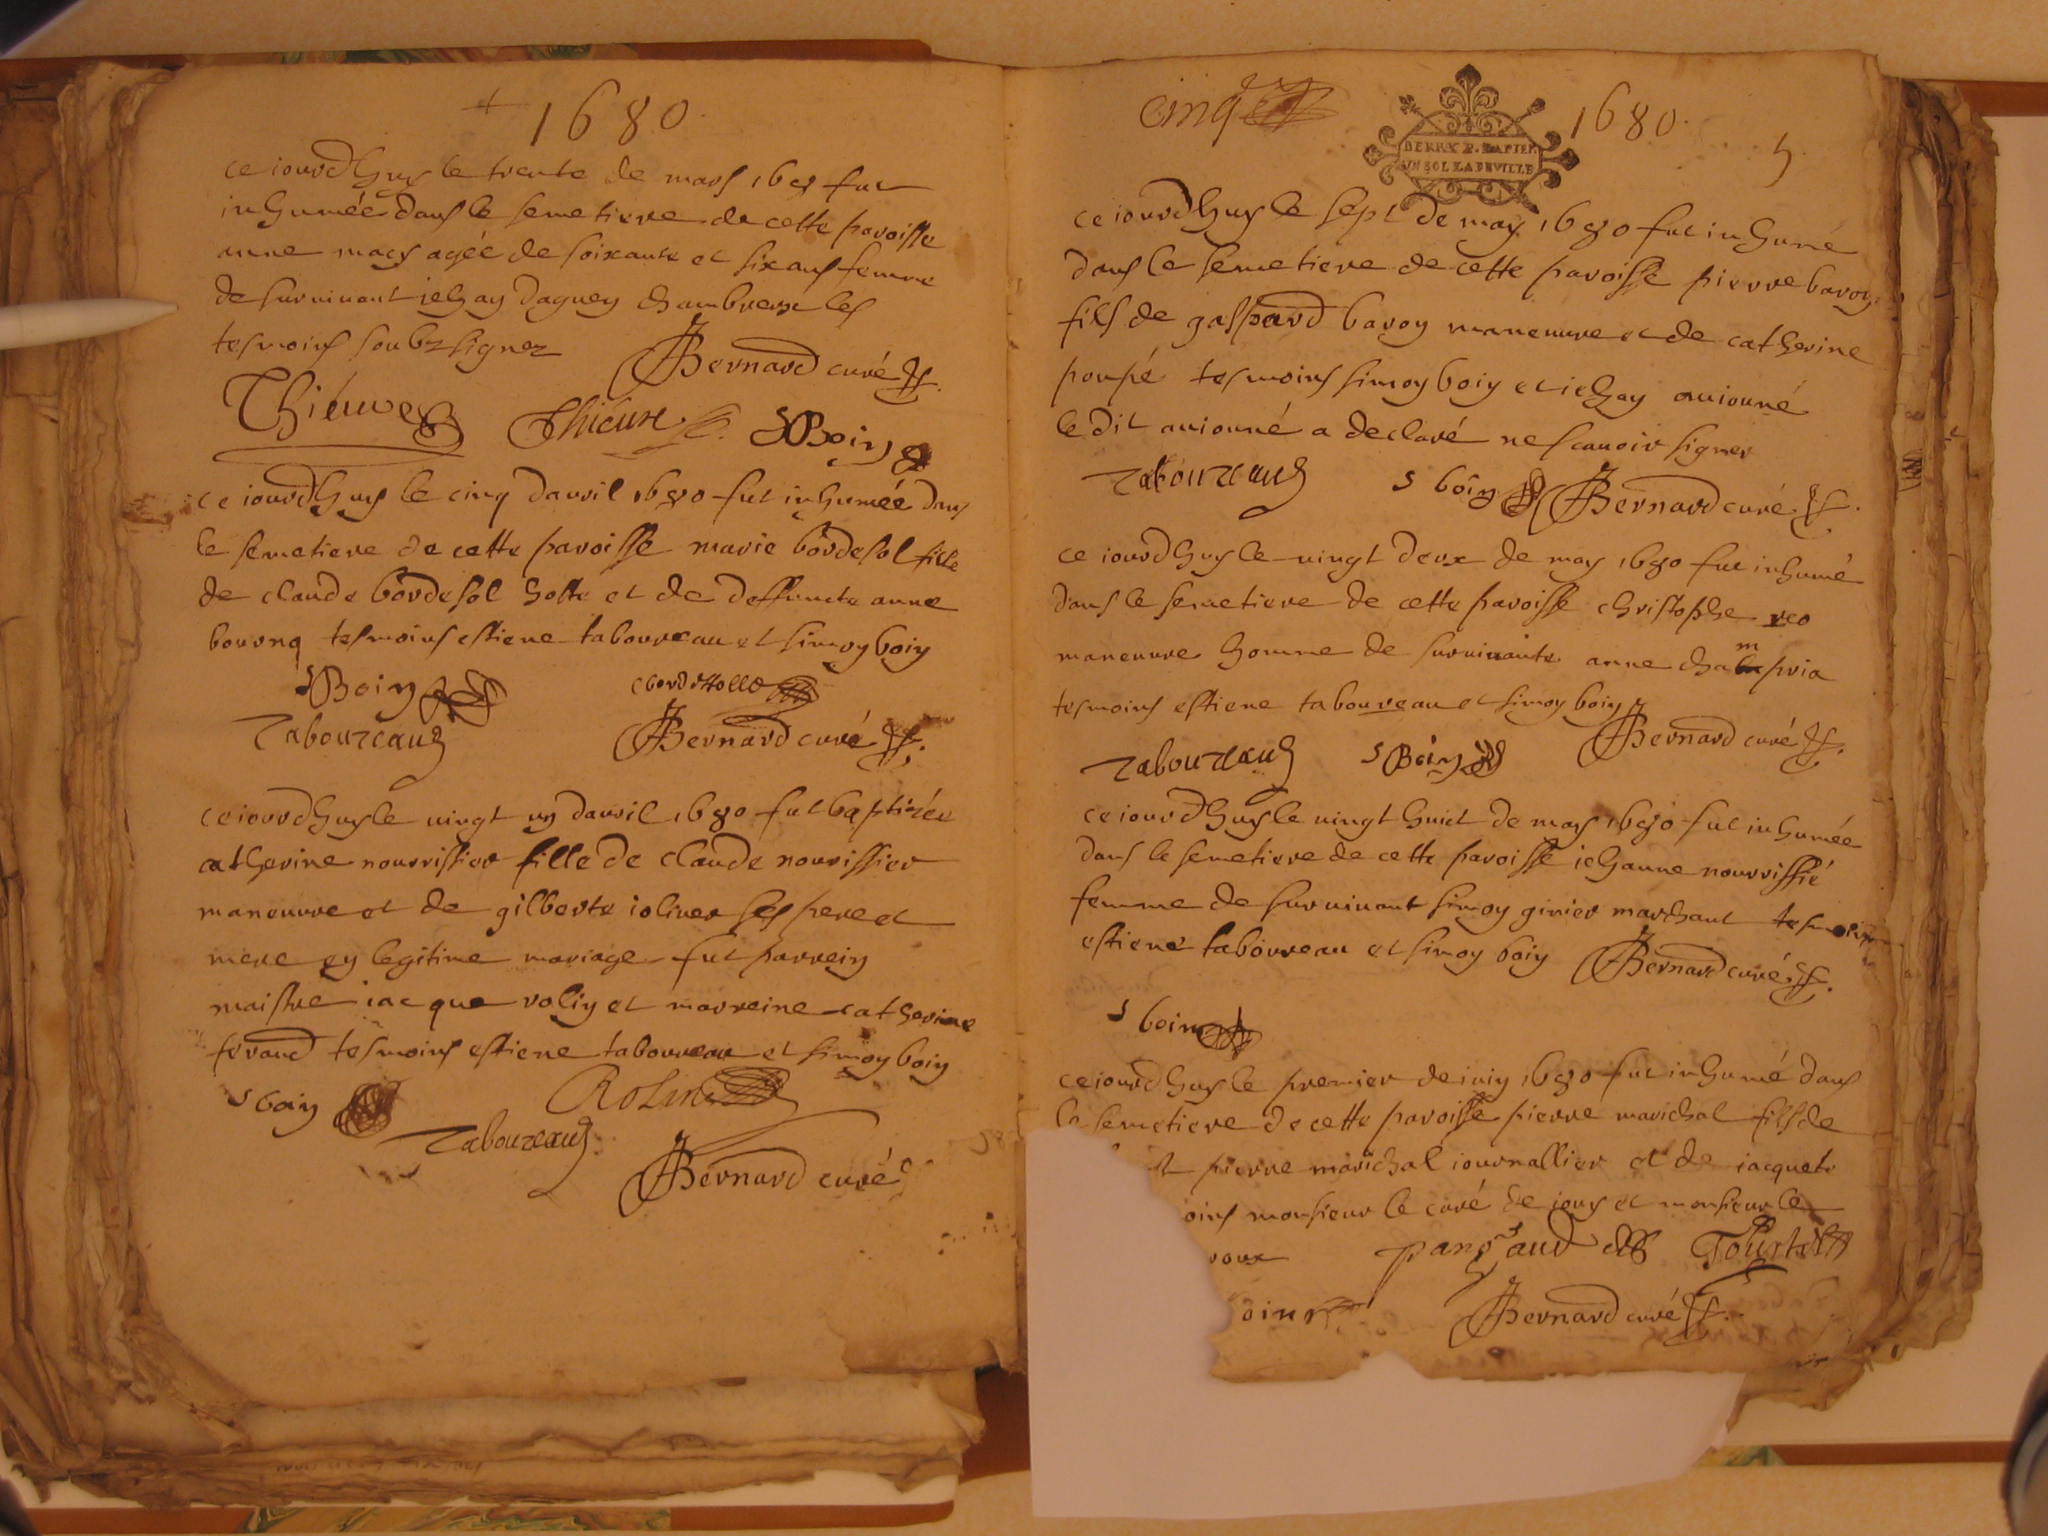 1680
ce iourdhuy le trente de mars 168 fut
inhumée dans le semetiere de cette paroisse
anne macy agée de soixante et six ans femme
de survivant iehan daguen les
tesmoins soubzsignez
JBernard curé
Thieuve
Thieuve SBoin
ce iourdhuy le cinq davril 1680 fut inhumée dans
le semetiere de cette paroisse marie bordesol fille
de claude bordesol hoste et de deffuncte anne
bouronq tesmoins estiene taboureau et simon boin
SBoin
Taboureau JBernard curé
ce iourdhuy le vingt un davril 1680 fut baptizée
catherine nourissier fille de claude nourissier
maneuvre et de gilberte ioliver ses pere et
mere en legitime mariage fut parrein
maistre iacque rolin et marreine catherine
feraud tesmoins estiene taboureau et simon boin
S boin Rolin
Taboureau
JBernard curé
cinq 1680
5
BERRY P. PAPIER
UN SOL LA FEUILLE
ce iourdhuy le sept de may 1680 fut inhumé
dans le semetiere de cette paroisse pierre baron
fils de gaspard baron maneuvre et de catherine
poupé tesmoins simon boin et iehan aniouné
le dit aniouné a declaré ne scauoir signer
Taboureau S boin JBernard curé
ce iourdhuy le vingt deux de may 1680 fut inhumé
dans le semetiere de cette paroisse christophe reo
maneuvre homme de survivante anne champria
tesmoins estiene taboureau et simon boin
JBernard curé
Taboureau SBoin
ce iourdhuy le vingt huict de may 1680 fut inhumée
dans le semetiere de cette paroisse iehanne nourissié
femme de survivant simon girier marchant tesmoins
estiene taboureau et simon boin JBernard curé
S boin
ce iourdhuy le premier de iuin 1680 fut inhumé dans
le semetiere de cette paroisse pierre marichal fils de
pierre marichal iournallier et de iacquete
oins monsieur le curé de ious et monsieur le
roux
oin JBernard curé